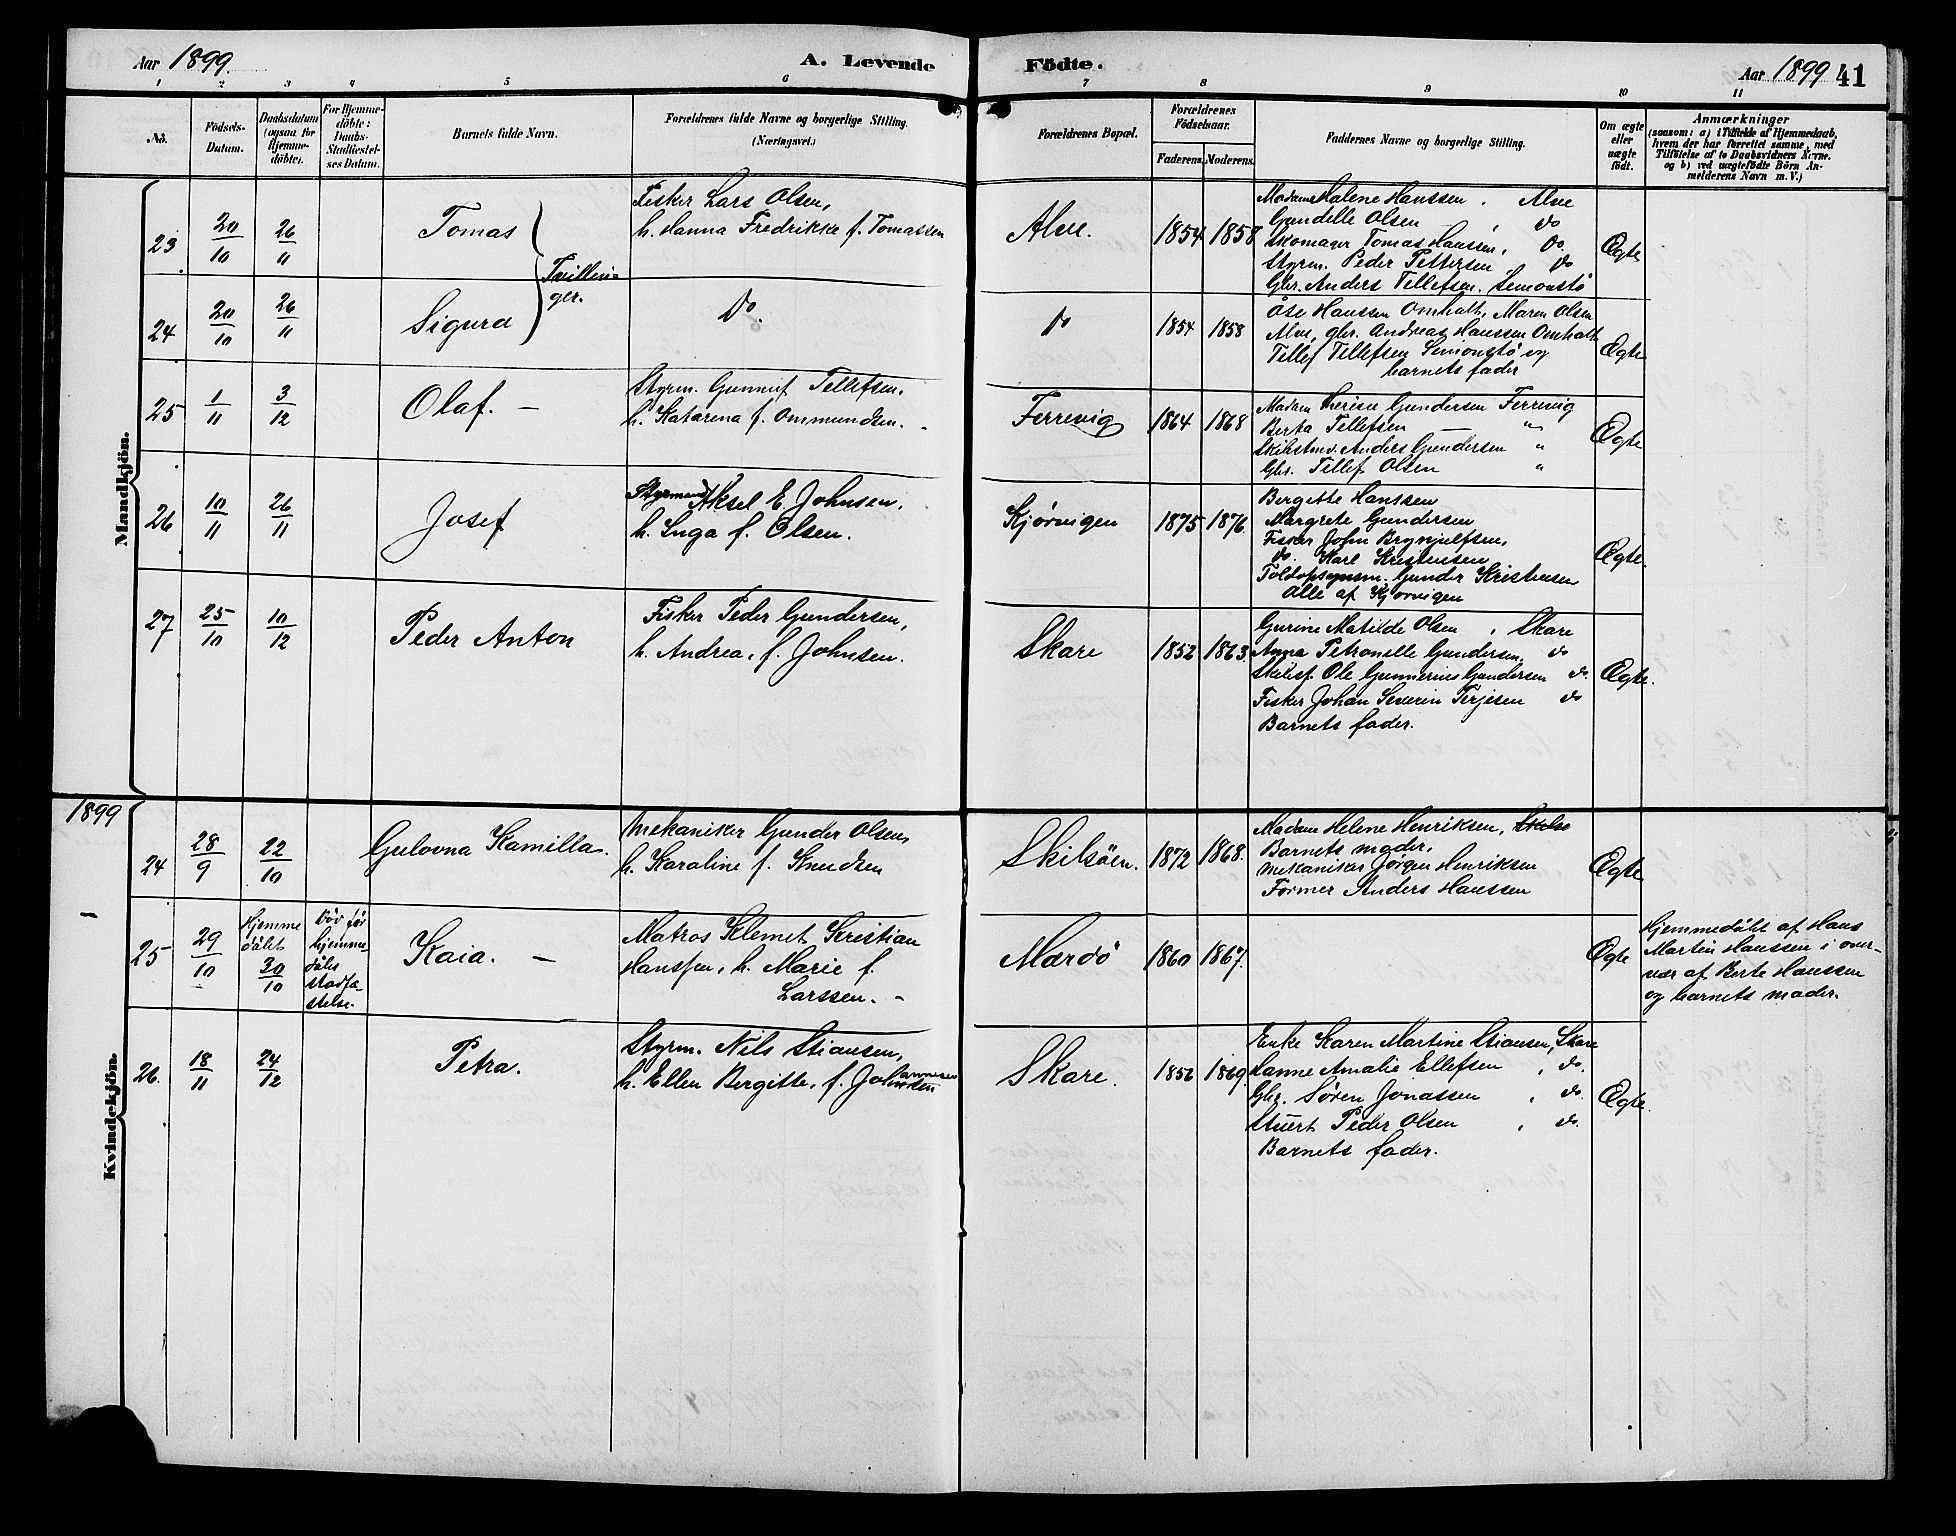 Aar 1899. A. Levende Födte. Aar 1899 41
1 2 3 4 5 6 7 8 9 10 11
No.
Födsels-Datum.
Daabsdatum (ogsaa for Hjemme-döbte).
For Hjemme-döbte: Daabs-Stadfæstel-ses Datum.
Barnets fulde Navn.
Forældrenes fulde Navne og borgerlige Stilling. (Næringsvei.)
Forældrenes Bopæl.
Forældrenes Födselsaar.
Faderens. Moderens.
Faddernes Navne og borgerlige Stilling.
Om ægte eller uægte födt.
Anmærkninger
(saasom: a) i Tilfælde af Hjemmedaab,
hvem der har forrettet samme, med
Tilföielse af to Daabsvidners Navne.
og b) ved uægtefödte Börn An-
melderens Navn m. V.)
Mandkjön.
23 20/10 26/11 Tomas } Tvillin=
ger.
Fisker Lars Olsen,
h. Hanna Fredrikke f. Tomassen
Alve. 1854 1858
Madam Malene Hanssen, Alve
Gundelle Olsen, do
Skomager Tomas Hanssen, Do.
Styrm. Peder Pettersen do
Gbr. Anders Tellefsen. Simonstø
Ægte
24 20/10 26/11 Sigurd
Do.
Do 1854 1858
Åse Hanssen Omholt, Maren Olsen
Alve, gbr. Andreas Hanssen Omholt
Tellef Tellefsen Simonstø og
barnets fader
Ægte
25 1/11 3/12 Olaf. –
Styrm. Gunnuf Tellefsen.
h. Katarena f. Ommundsen. -
Ferrevig 1864 1868
Madam Therese Gundersen Ferrevig
Berta Tellefsen — "
Skibstmd. Anders Gundersen "
Gbr. Tellef Olsen "
Ægte
26 10/11 26/11 Josef
Styrmand Aksel E. Johnsen.
h. Inga f. Olsen.
Kjørvigen 1875 1876.
Bergette Hanssen
Margrete Gundersen
Fisker John Brynjulfsen,
do Karl Kristensen
Toldopsynsm. Gunder Kristensen
Alle af Kjørvigen
Ægte.
27 25/10 10/12 Peder Anton
Fisker Peder Gundersen,
h. Andrea, f. Johnsen.
Skare 1852 1863.
Gurine Matilde Olsen, Skare
Anna Petronelle Gundersen, do
Skibsf. Ole Gunnerius Gundersen do.
Fisker Johan Severin Terjesen do
Barnets fader.
Ægte.
1899
Kvindekjön.
24 28/9 22/10 Gulovna Kamilla.
Mekaniker Gunder Olsen,
h. Karoline f. Knudsen
Skilsöen. 1872 1868.
Madam Helene Henriksen, Skilsö
Barnets moder,
Mekaniker Jørgen Henriksen
Former Anders Hanssen
Ægte
25 29/10 Hjemme
döbt
30/10 Död før
hjemme-
döbs
stadfæ-
stelse. Kaia. –
Matros Klemet Kristian
Hanssen, h. Marie f.
Larssen. -
Mærdö 1860 1867.
Ægte
Hjemmedöbt af Hans
Martin Hanssen i over-
vær af Berte Hanssen
og barnets moder.
26. 18/11 24/12 Petra.
Styrm. Nils Stiansen,
h. Ellen Bergitte, f. Johannesen
Skare. 1856 1869.
Enke Karen Martine Stiansen, Skare
Hanne Amalie Ellefsen, do.
Gbr. Søren Jonassen, do.
Stuert Peder Olsen, do.
Barnets fader.
Ægte.